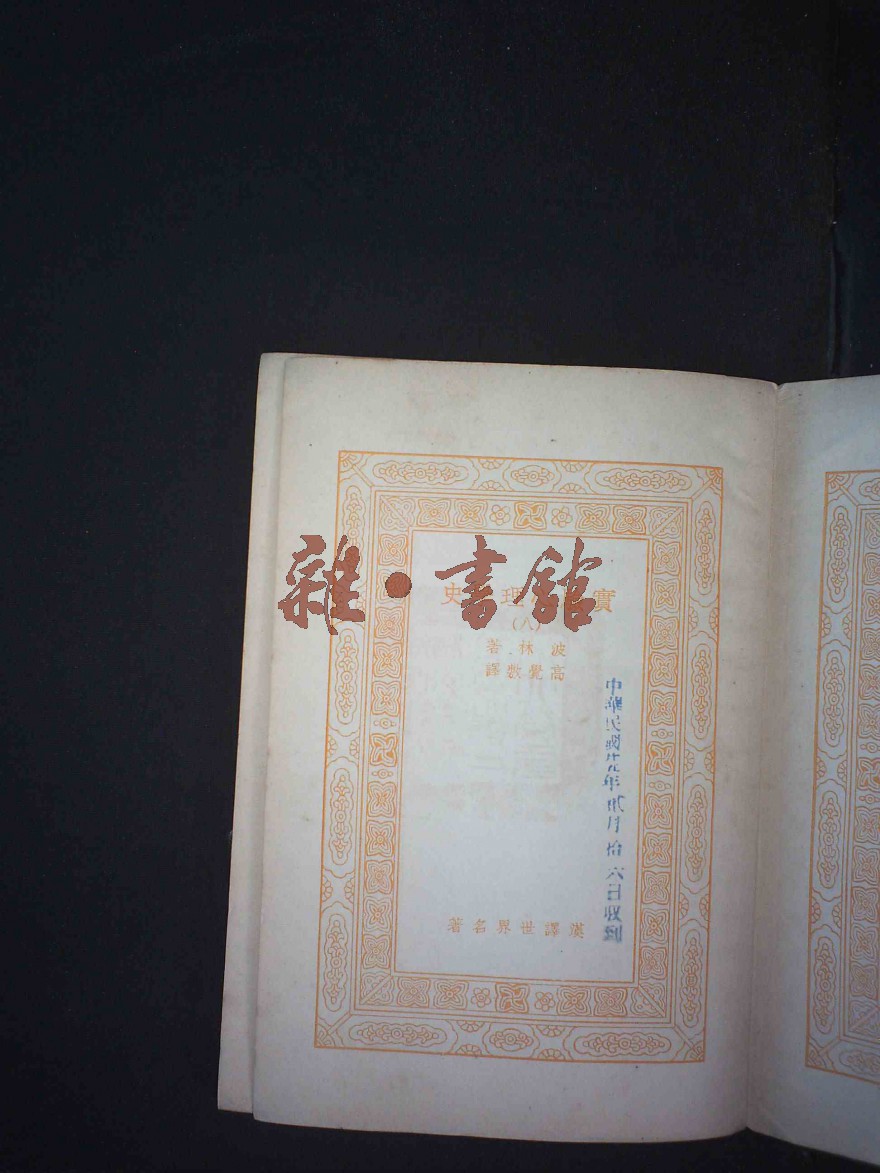 雜·書館
實驗心理學史
(八)
波林著
高覺敷譯
中華民國廿九年貳月拾六日收到
漢譯世界名著